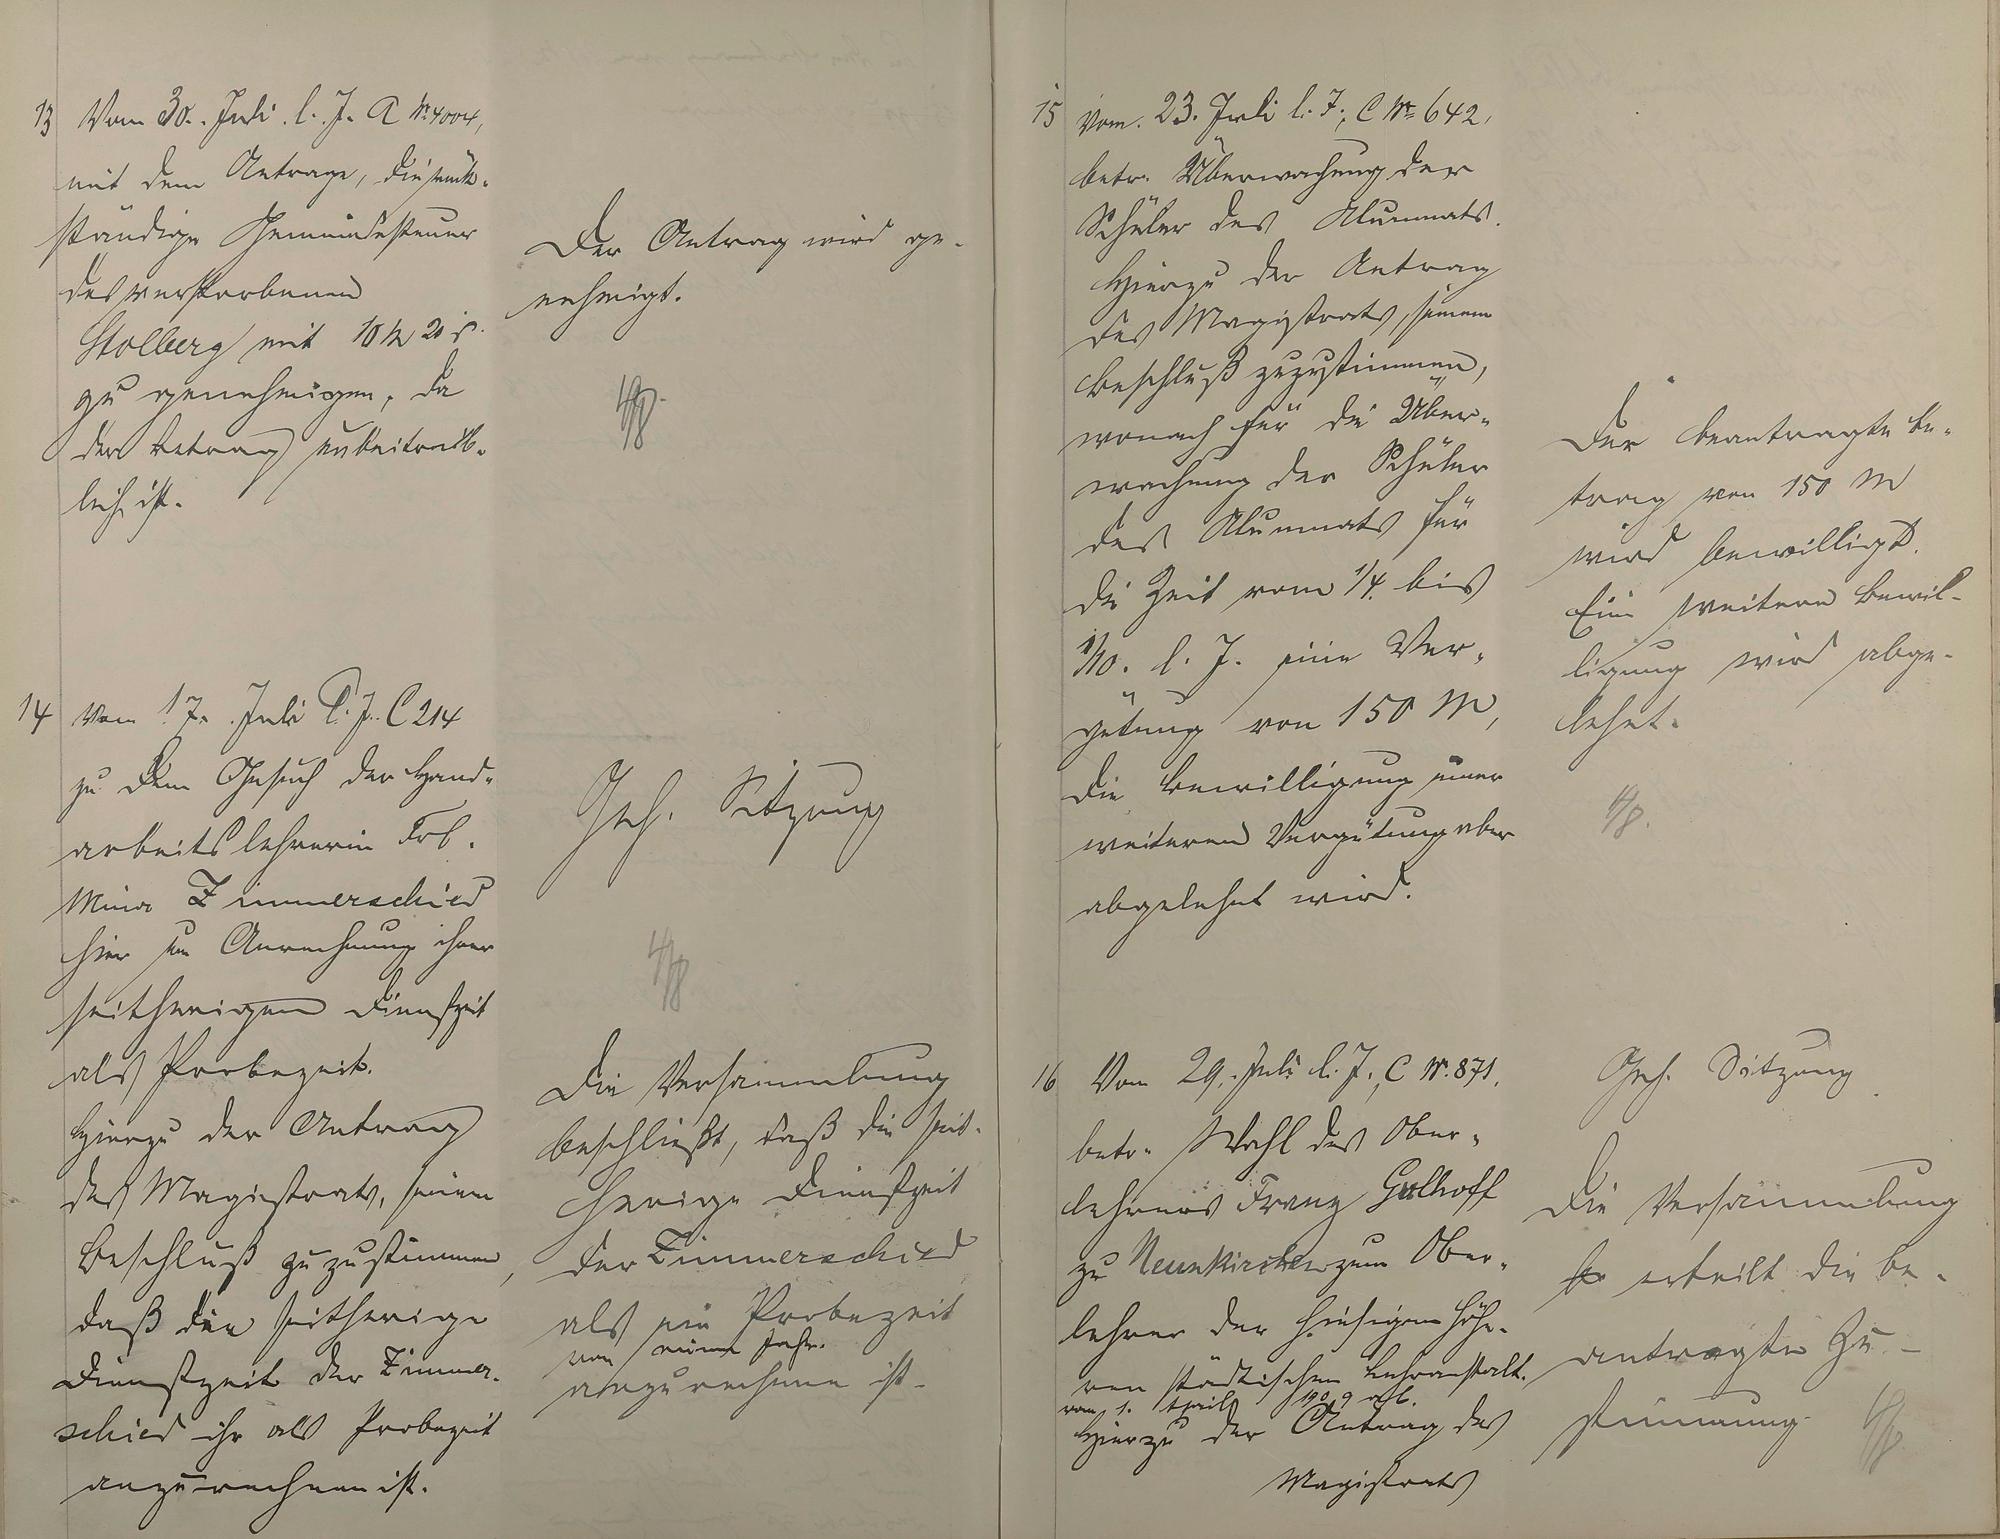 13 Vom 30. Juli l. J. A Nr. 4004,
mit dem Antrage, die rück-
ständige Gemeindesteuer
des verstorbenen
Stolberg mit 10 M 20 ₰
zu genehmigen, da
der Betrag unbeitreib-
lich ist.
Der Antrag wird ge-
nehmigt.
4/8.
14 Vom 17. Juli l. J. C 214
zu dem Gesuch der Hand-
arbeitslehrerin Frl.
Mina Zimmerschied
hier um Anrechnung ihrer
seitherigen Dienstzeit
als Probezeit.
Hierzu der Antrag
des Magistrats, seinem
Beschluß zuzustimmen,
daß die seitherige
Dienstzeit der Zimmer-
schied ihr als Probezeit
anzurechnen ist.
Geh. Sitzung
4/8
Die Versammlung
beschließt, daß die seit-
herige Dienstzeit
der Zimmerschied
als ein Probezeit
von einem Jahr.
anzurechnen ist.
15 Vom. 23. Juli l. J., C Nr. 642,
betr. Überwachung der
Schüler des Alumnats.
Hierzu der Antrag
des Magistrats, seinem
Beschluß zuzustimmen,
wonach für die Über-
wachung der Schüler
des Alumnats für
die Zeit vom 1/4. bis
1/10. l. J. eine Ver-
gütung von 150 M,
die Bewilligung einer
weiteren Vergütung aber
abgelehnt wird.
Der beantragte Be-
trag von 150 M
wird bewilligt.
Eine weitere Bewil-
ligung wird abge-
lehnt.
4/8.
16 Vom 29. Juli l. J., C Nr. 871,
betr. Wahl des Ober-
lehrers Franz Gulhoff
zu Neunkirchen zum Ober-
lehrer der hiesigen höhe-
ren städtischen Lehranstalt.
vom 1. April 1909 ab.
Hierzu der Antrag des
Magistrats
Geh. Sitzung
Die Versammlung
erteilt die be-
antragte Zu-
stimmung.
4/8.